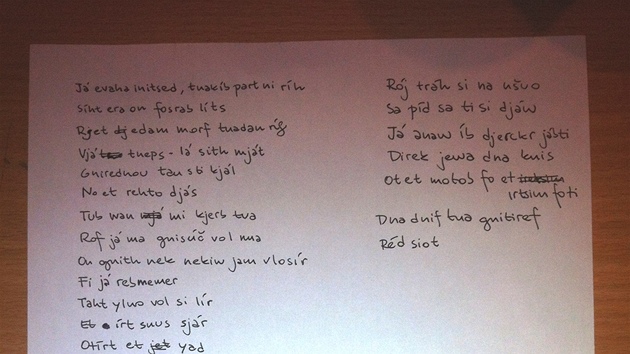 Já evaha initsed, tuakíb part ni ríh
Siht era on fosrab líts
Rget edam morf tuadan ríg
Vjá tneps - lá sith mját
Gnirednou tau sti kjál
No et rehto djás
Tub wan mi kjerb tua
Rof já ma gnisúč vol nua
On gnith nek nekiw jam vlosír
Fi já rebmemer
Taht ylwo vol si lír
írt suus sjár
Otírt et yad
Rój tráh si na ušuo
Sa píd sa ti si djáw
Já anaw íb djerckr jásti
Direk jewa dna knis
Otet motob fo et
irtsim foti
Dna dnif tua gnitiref
Réd siot